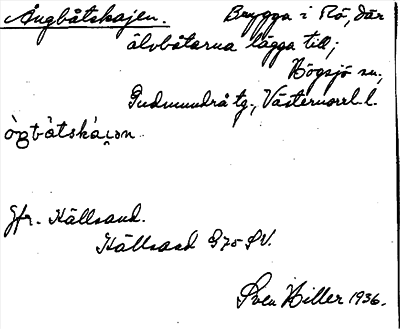 Ångbåtskajen. Brygga i Rö, där
älvbåtarna lägga till;
Högsjö sn.,
Gudmundrå tg., Västernorrl. l.
Jfr. Hällsand.
Hällsand G75 SV.
Sven Hiller 1936.